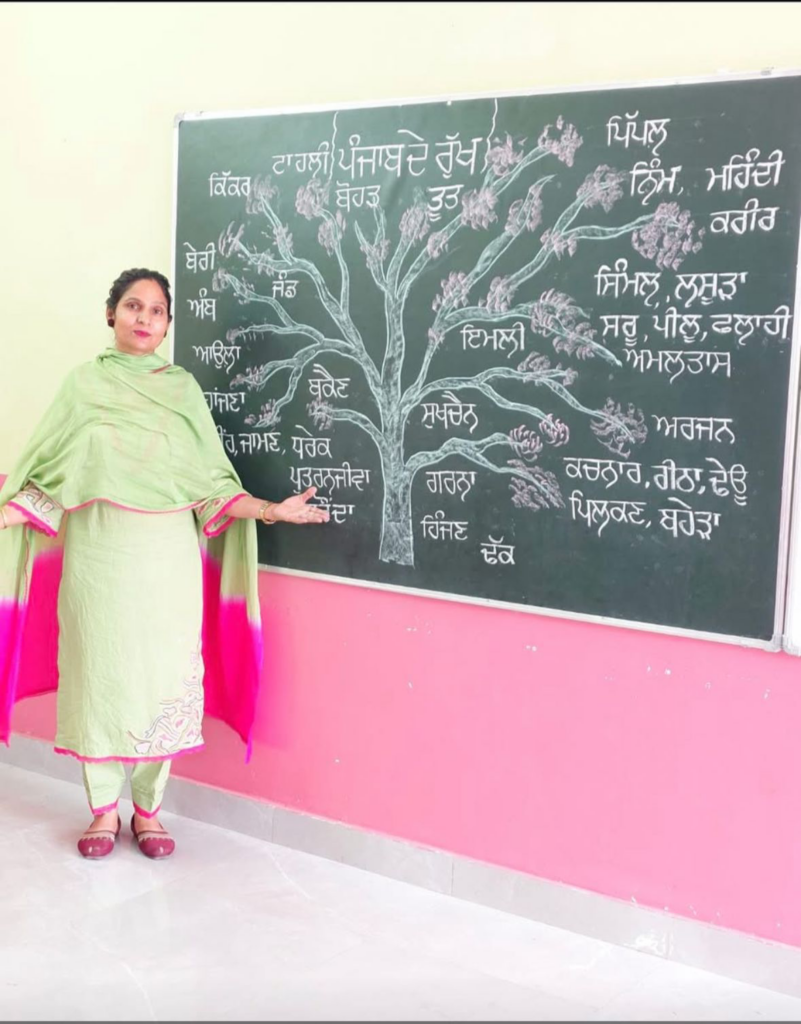 ਪੰਜਾਬ ਦੇ ਰੁੱਖ
ਟਾਹਲੀ
ਕਿੱਕਰ
ਬੋਹੜ
ਤੂਤ
ਪਿੱਪਲ
ਨਿੰਮ, ਮਹਿੰਦੀ
ਕਰੀਰ
ਬੇਰੀ
ਜੰਡ
ਅੰਬ
ਸਿੰਮਲ, ਲਸੂੜਾ
ਸਰੂ, ਪੀਲੂ, ਫਲਾਹੀ
ਇਮਲੀ
ਅਮਲਤਾਸ
ਆਉਲਾ
ਬਕੈਣ
ਸੁਖਚੈਨ
ਅਰਜਨ
ਜਾਮਣ, ਧਰੇਕ
ਪੁਤਰਨਜੀਵਾ
ਗਰਨਾ
ਕਚਨਾਰ, ਰੀਠਾ, ਢੇਊ
ਪਿਲਕਣ, ਬਹੇੜਾ
ਹਿੰਜਣ
ਢੱਕ